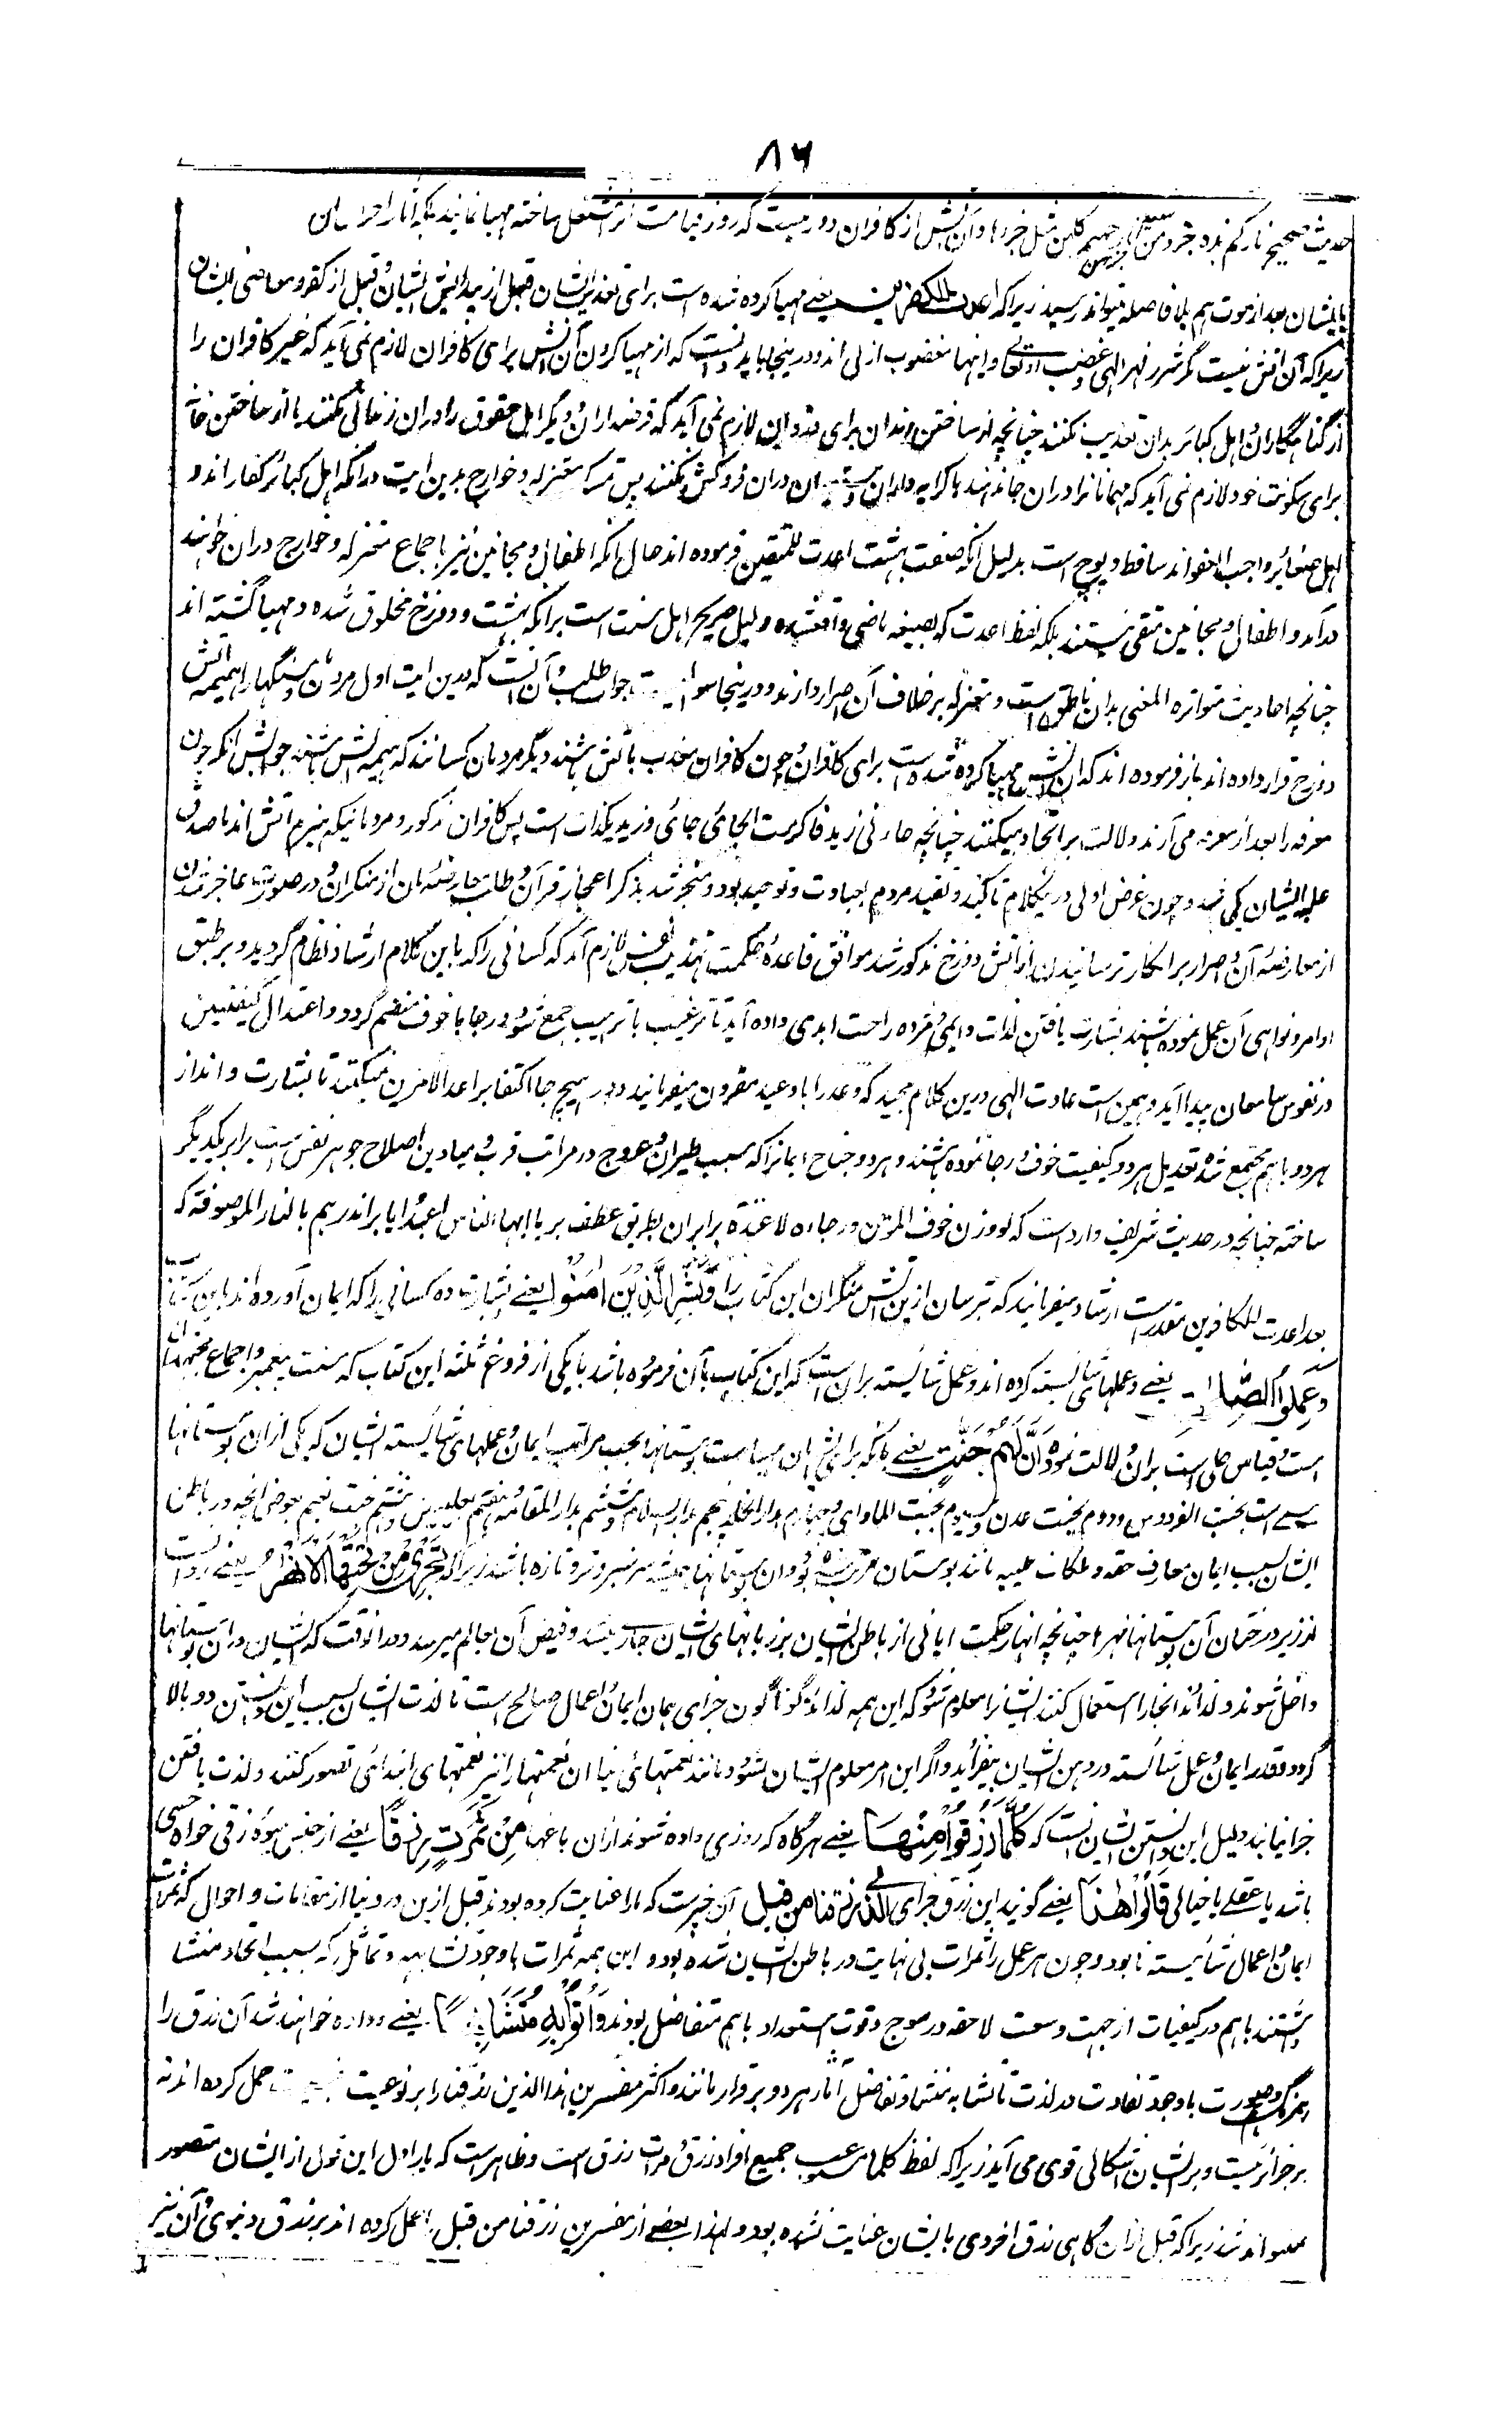 ۸۶
حدیث صحیح نارکم هذه جزء من سبعین جزء من نار جهنم کلهن مثل حرها و آن آتش از کافران دور نیست که روز قیامت مشتعل ساخته مهیا نمایند بلکه آثار احراق آن
بایشان بعد از موت هم بلا فاصله میتواند رسید زیرا که اعدت للکفرین یعنے مهیا کرده شده است برای تعذیب ایشان قبل از پیدایش ایشان و قبل از کفر و معاصی ایشان
زیرا که آن آتش نیست مگر شرر قهر الهی و غضب او تعالی و اینها مغضوب ازلی اند و درینجا باید دانست که از مهیا کردن آن آتش برای کافران لازم نمی آید که غیر کافران را
از گناهگاران و اهل کبائر بدان تعذیب نکنند چنانچه از ساختن زندان برای دزدان لازم نمی آید که قرضداران و دیگر اهل حقوق را دران زندانی نکنند یا از ساختن خانه
برای سکونت خود لازم نمی آید که مهمانانرا دران جا ندهند یا کرایه داران و دوستان دران فروکش نکنند پس تمسک معتزله و خوارج بدین آیت درانکه اهل کبائر کفار اند و
اهل صغائر واجب العفو اند ساقط و پوچ است بدلیل آنکه صفت بهشت اعدت للمتقین فرموده اند حال آنکه اطفال و مجانین نیز باجماع معتزله و خوارج دران خواهند
درآمد و اطفال و مجانین متقی نیستند بلکه لفظ اعدت که بصیغه ماضی واقعشده دلیل صریح اهل سنت است برانکه بهشت و دوزخ مخلوق شده و مهیا گشته اند
چنانچه احادیث متواتره المعنی بدان ناطق است و معتزله برخلاف آن اصرار دارند و درینجا سوالیست جواب طلب و آن آنست که درین آیت اول مردمان و سنگها را هیمه آتش
دوزخ قرار داده اند باز فرموده اند که آن آتش مهیا کرده شده است برای کافران و چون کافران معذب باتش باشند دیگر مردمان کسانند که هیمه آتش باشند جوابش آنکه چون
معرفه را بعد از معرفه می آرند دلالت بر اتحاد میکنند چنانچه جاءنی زید فاکرمت الجائی جائی و زید یکذات است پس کافران مذکور و مردمانیکه هیزم آتش اند ما صدق
علیه ایشان یکی شد و چون غرض اولی درینکلام تاکید و تقید مردم بعبادت و توحید بود و منجر شد بذکر اعجاز قرآن و طلب معارضه آن از منکران و در صورت عاجز شدن
از معارضه آن و اصرار بر انکار ترسانیدن از آتش دوزخ مذکور شد موافق قاعده حکمت تهذیب نفس لازم آمد که کسانی را که باین کلام ارشاد نظام گردیده و بر طبق
اوامر و نواهی آن عمل نموده باشند بشارت یافتن لذات دایمی و مژده راحت ابدی داده آید تا ترغیب با ترهیب جمع شود و رجا با خوف منضم گردد و اعتدال کیفیتین
در نفوس سامعان پیدا آید و همین است عادت الهی درین کلام مجید که وعد را با وعید مقرون میفرمایند و در هیچ جا اکتفا بر احد الامرین نمیکنند تا بشارت و انذار
هر دو باهم مجتمع شده تعدیل هر دو کیفیت خوف و رجا نموده باشند و هر دو جناح ایمانرا که سبب طیران و عروج در مراتب قرب و میادین اصلاح جوهر نفس است برابر یکدیگر
ساخته چنانچه در حدیث شریف وارد است که لو وزن خوف المؤمن و رجاءه لاعتدلا برابران بطریق عطف بر یا ایها الناس اعبدوا یا بر انذرهم بالنار الموصوفة که
بعد اعدت للکافرین مقدر است ارشاد میفرمایند که بترسان ازین آتش منکران این کتاب را وَبَشِّرِ الَّذِیْنَ اٰمَنُوْا یعنے بشارت ده کسانی را که ایمان آورده اند باین کتاب
وَعَمِلُوا الصّٰلِحٰتِ یعنے و عملهای شایسته کرده اند و عمل شایسته بران است که این کتاب بآن فرموده باشد یا یکی از فروع ثلثه این کتاب که سنت پیغمبر و اجماع مجتهدان
است و قیاس جلی است بران دلالت نموده اَنَّ لَهُمْ جَنّٰتٍ یعنے بآنکه برای ایشان مهیا است بوستانها بحسب مراتب ایمان و عملهای شایسته ایشان که یکی ازان بوستانها
مسمی است بجنت الفردوس و دوم بجنت عدن و سیوم بجنت الماوی و چهارم بدار الخلد و پنجم بدار السلام و ششم بدار المقامة و هفتم بعلیین و هشتم جنت نعیم بعوض آنچه در باطن
ایشان بسبب ایمان معارف حقه و ملکات طیبه مانند بوستان مرتب شده بود و ان بوستانها همیشه سرسبز و تر و تازه باشند زیرا که تَجْرِیْ مِنْ تَحْتِهَا الْاَنْهٰرُ یعنے روانست
از زیر درختان آن بوستانها نهرها چنانچه انهار حکمت ایمانی از باطن ایشان بر زبانهای ایشان جاری میشد و فیض آن بعالم میرسد و درانوقت که ایشان دران بوستانها
داخل شوند و لذائذ آنجا را استعمال کنند ایشانرا معلوم شود که این همه لذائذ گوناگون جزای همان ایمان و اعمال صالح است تا لذت ایشان بسبب این دانستن دو بالا
گردد و قدر ایمان و عمل شایسته در ذهن ایشان بیفزاید و اگر این امر معلوم ایشان نشود مانند نعمتهای دنیا آن نعمتها را نیز نعمتهای ابتدائی تصور کنند و لذت یافتن
جزا نیابند و دلیل این دانستن ایشان اینست که کُلَّمَا رُزِقُوْا مِنْهَا یعنے هرگاه که روزی داده شوند ازان باغها مِنْ ثَمَرَةٍ رِّزْقًا یعنے از جنس میوه رزقی خواه حسی
باشد یا عقلے یا خیالی قَالُوْا هٰذَا یعنے گویند این رزق جزای الَّذِیْ رُزِقْنَا مِنْ قَبْلُ آن چیزیست که ما را عنایت کرده بودند قبل ازین در دنیا از مقامات و احوال که ثمرات
ایمان و اعمال شایسته ما بود و چون هر عمل را ثمرات بی نهایت در باطن ایشان شده بود و این همه ثمرات با وجود تشابه و تماثل که بسبب اتحاد منشا
داشتند باهم در کیفیات از جهت وسعت لاحقه در موج و قوت استعداد باهم متفاضل بودند وَاُتُوْا بِهٖ مُتَشَابِهًا یعنے و داده خواهند شد آن رزق را
همرنگ و صورت با وجود تفاوت در لذت تا تشابه منشا و تفاضل آثار هر دو برقرار مانند و اکثر مفسرین هذا الذی رزقنا را بر نوعیت حمل کرده اند نه
بر جزائیت و بر ایشان اشکالی قوی می آید زیرا که لفظ کلما مستوعب جمیع افراد رزق و مرات رزق است و ظاهر است که بار اول این قول از ایشان متصور
نمیتواند شد زیرا که قبل ازان گاهی رزق اخروی بایشان عنایت نشده بود و لهذا بعضے از مفسرین رزقنا من قبل را حمل کرده اند بر رزق دنیوی و آن نیز